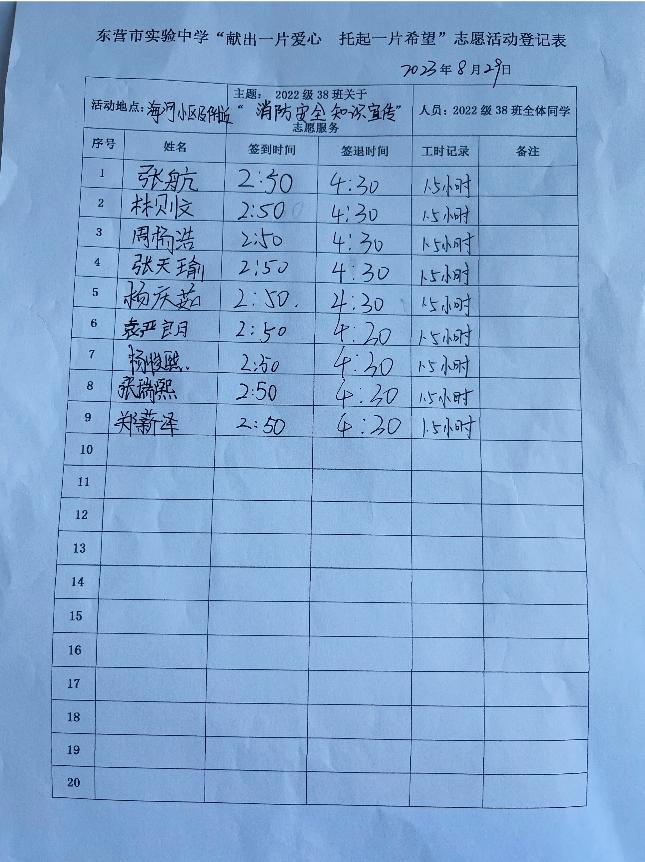 东营市实验中学“献出一片爱心 托起一片希望”志愿活动登记表
2023年8月29日
活动地点：海河小区及附近 主题： 2022级38班关于“消防安全知识宣传”志愿服务 人员：2022级38班全体同学
序号 姓名 签到时间 签退时间 工时记录 备注
1 张航 2:50 4:30 1.5小时
2 林则文 2:50 4:30 1.5小时
3 周杨浩 2:50 4:30 1.5小时
4 张天瑜 2:50 4:30 1.5小时
5 杨庆茹 2:50. 4:30 1.5小时
6 2:50 4:30 1.5小时
7 杨俊熙 2:50 4:30 1.5小时
8 张瑞熙 2:50 4:30 1.5小时
9 郑薪泽 2:50 4:30 1.5小时
10
11
12
13
14
15
16
17
18
19
20